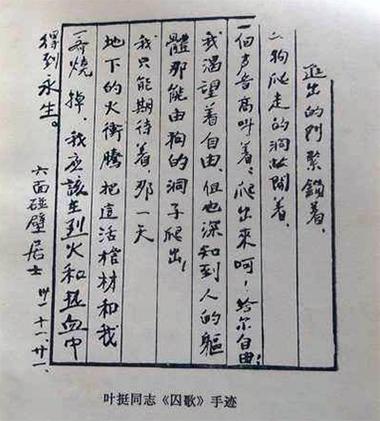 進出的门緊鎖着，
狗爬走的洞敞開着，
一個声音高叫着：爬出來呵！给尔自由！
我渴望着自由，但也深知到人的軀
體那能由狗的洞子爬出！
我只能期待着，那一天
地下的火衝騰把這活棺材和我
一齊燒掉，我應該在烈火和热血中
得到永生。
六面碰壁居士 卅一、十一、廿一、
叶挺同志《囚歌》手迹